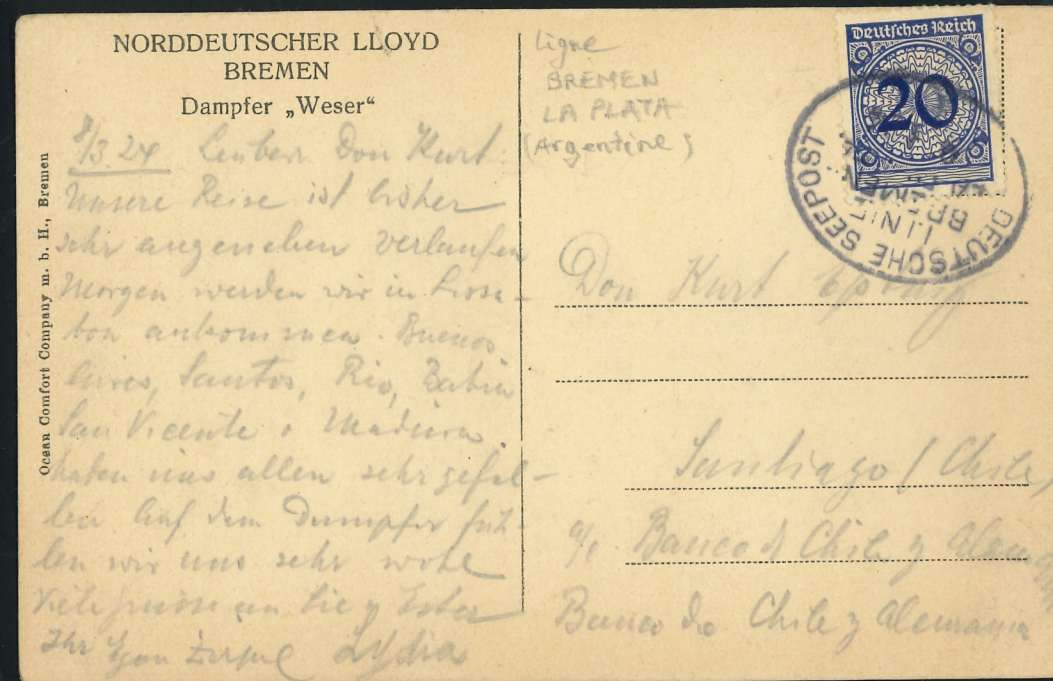 NORDDEUTSCHER LLOYD
BREMEN
Dampfer „Weser“
Ocean Comfort Company m. b. H., Bremen
8/3.24 Don Kurt:
Unsere Reise ist bisher
sehr angenehm verlaufen
Morgen werden wir in Lissa-
bon ankommen. Buenos
Aires, Santos, Rio, Bahia
San Vicente u Madeira
haben uns allen sehr gefal-
len Auf dem Dampfer füh-
len wir uns sehr wohl
Viele Grüsse an Sie y Ester
Ihr Egon Lydia
Ligne
BREMEN
LA PLATA
(Argentine)
Deutsches Reich
20
DEUTSCHE SEEPOST
LINIE
BREMEN
Don Kurt
Santiago (Chile)
c/o Banco de Chile y Alemania
Banco de Chile y Alemania